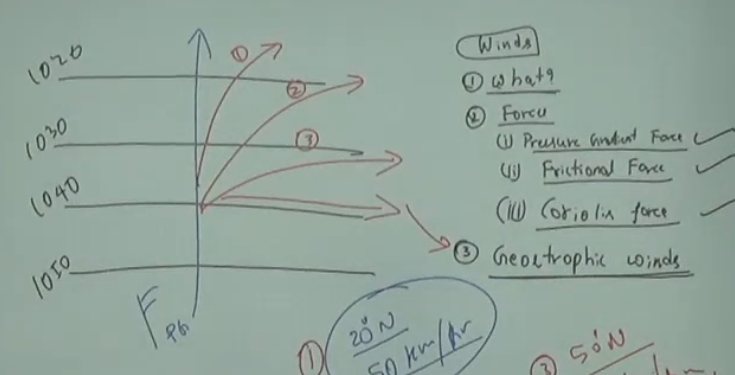 1020
1030
1040
1050
①
②
③
F PG
Winds
① What?
② Force
(i) Pressure Gradient Force
(ii) Frictional Force
(iii) Coriolis force
③ Geostrophic winds
①
20°N
50 km/hr
③ 50°N